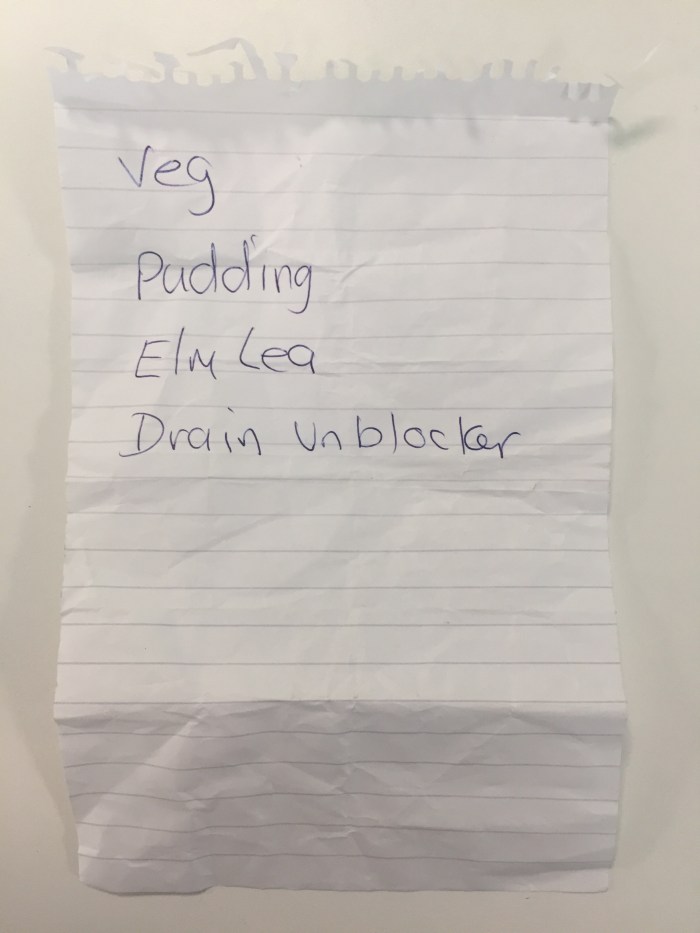 Veg
Pudding
Elm Lea
Drain Unblocker